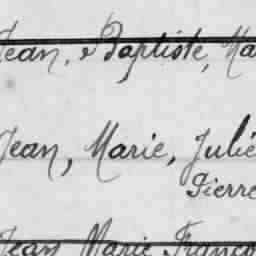 Jean, Baptiste, Ma
Jean, Marie, Julie
Pierre
Jean Marie Franço